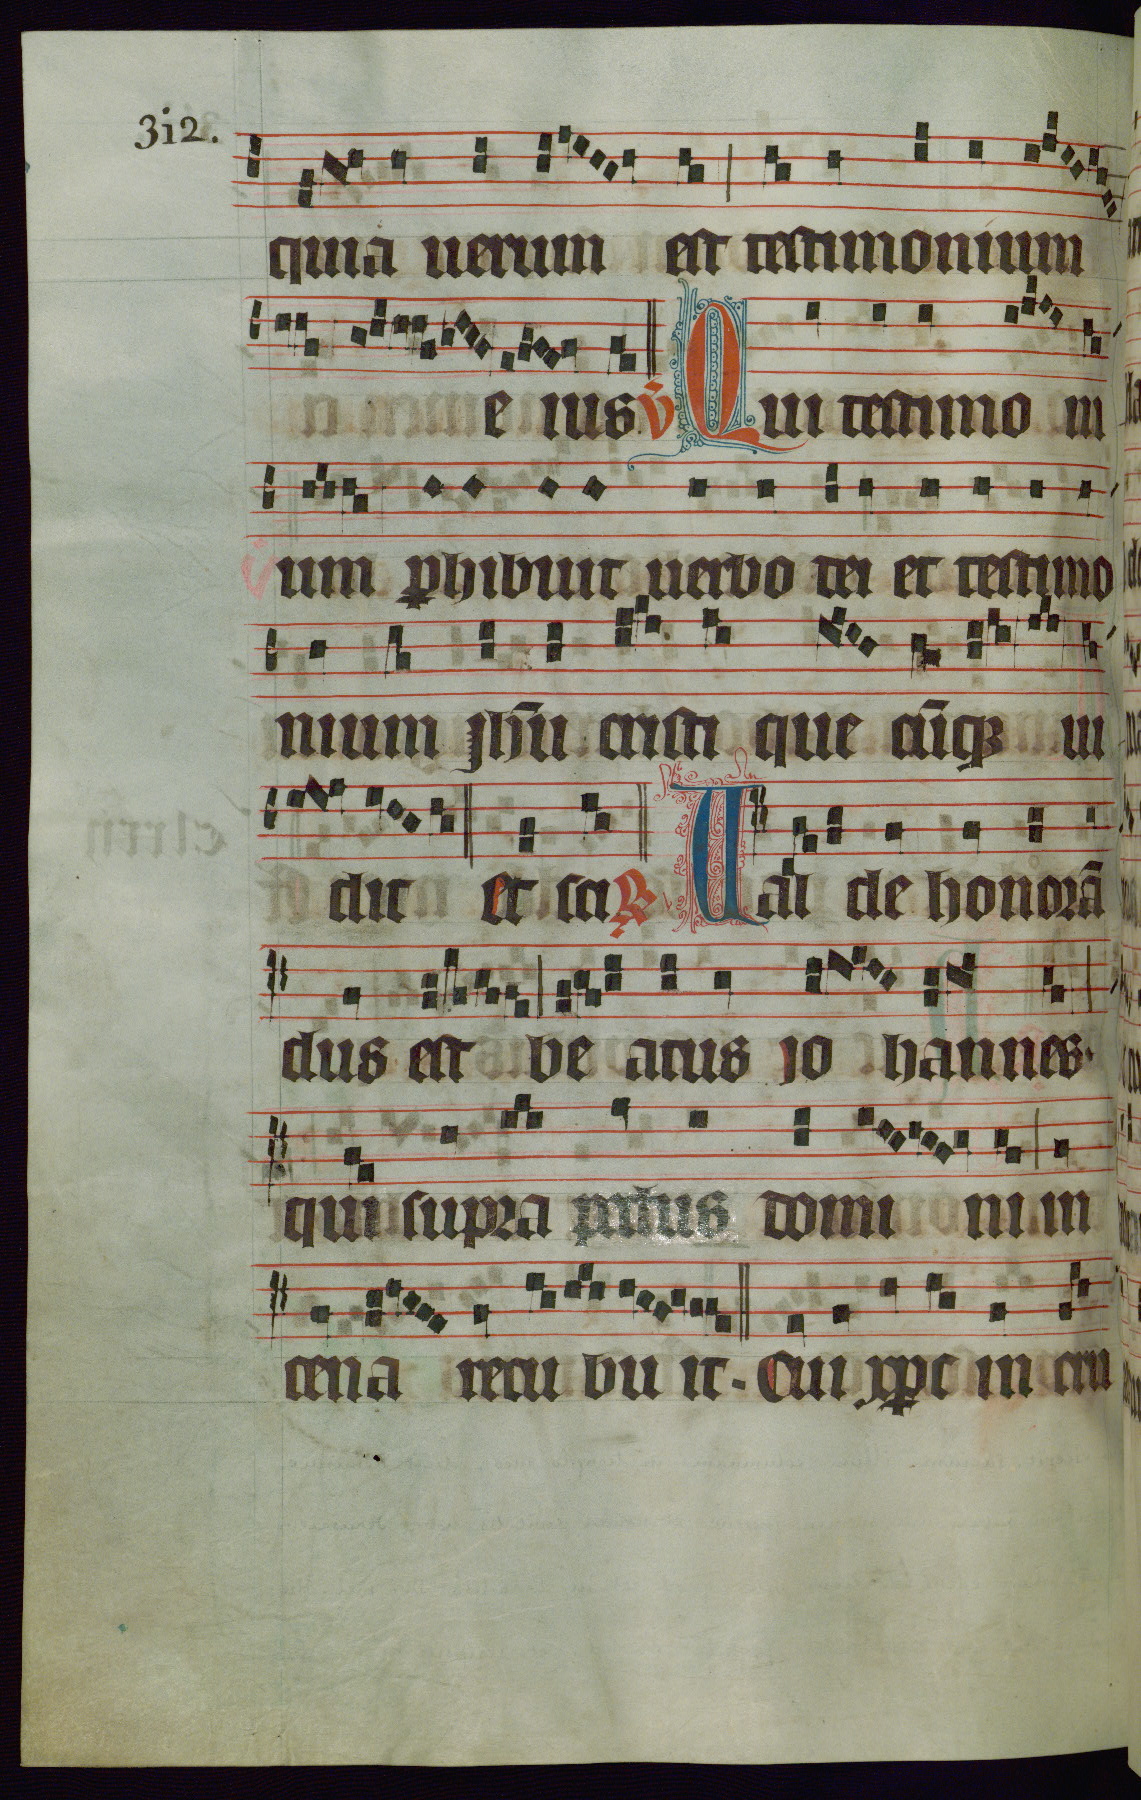 312.
quia uerum est testimonium
e ius. v̄ Qui testimo ni
um ꝑhibuit uerbo dei et testimo
nium jhū cristi que cūqꝫ ui
dit et sci ℟ Ual de honorā
dus est be atus jo hannes.
qui supra pectus domi ni in
cena recu bu it. Cui xp̄c in cru